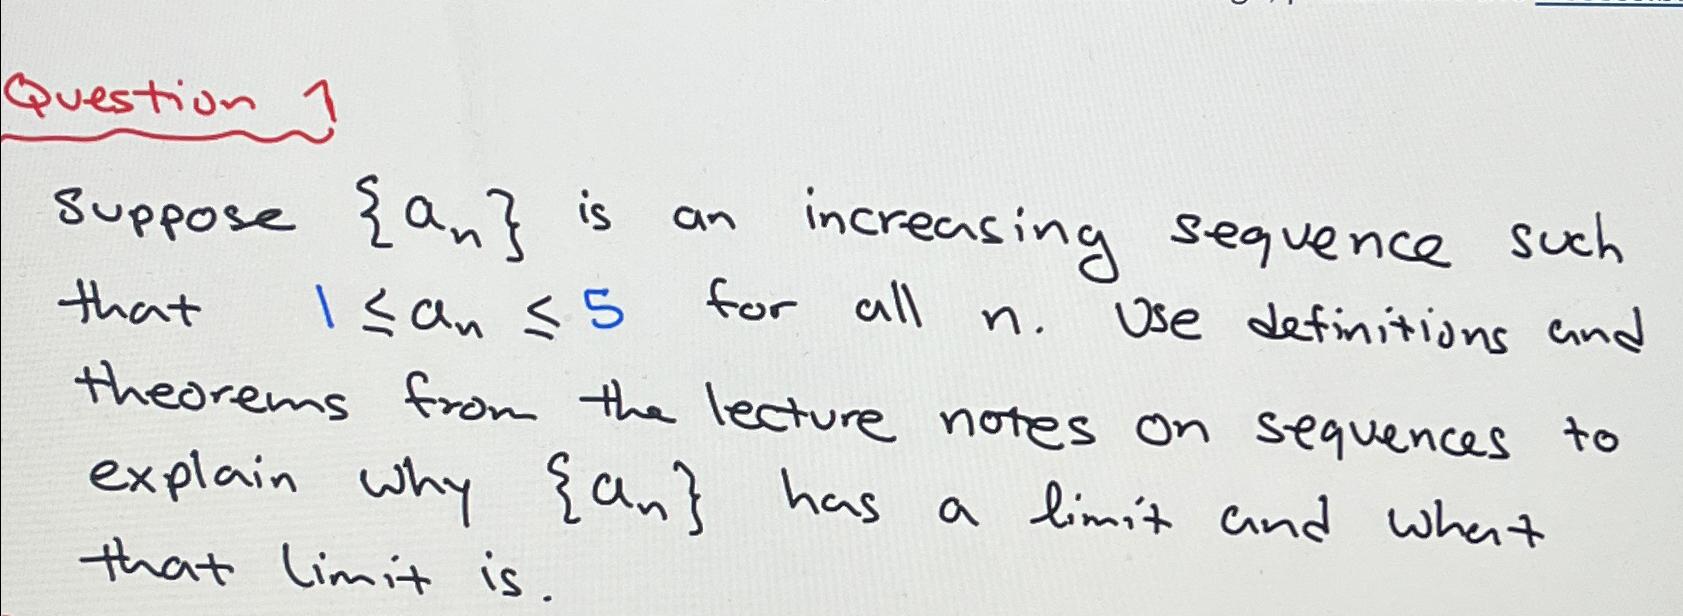 Question 1
Suppose {aₙ} is an increasing sequence such
that 1 ≤ aₙ ≤ 5 for all n. Use definitions and
theorems from the lecture notes on sequences to
explain why {aₙ} has a limit and what
that limit is.